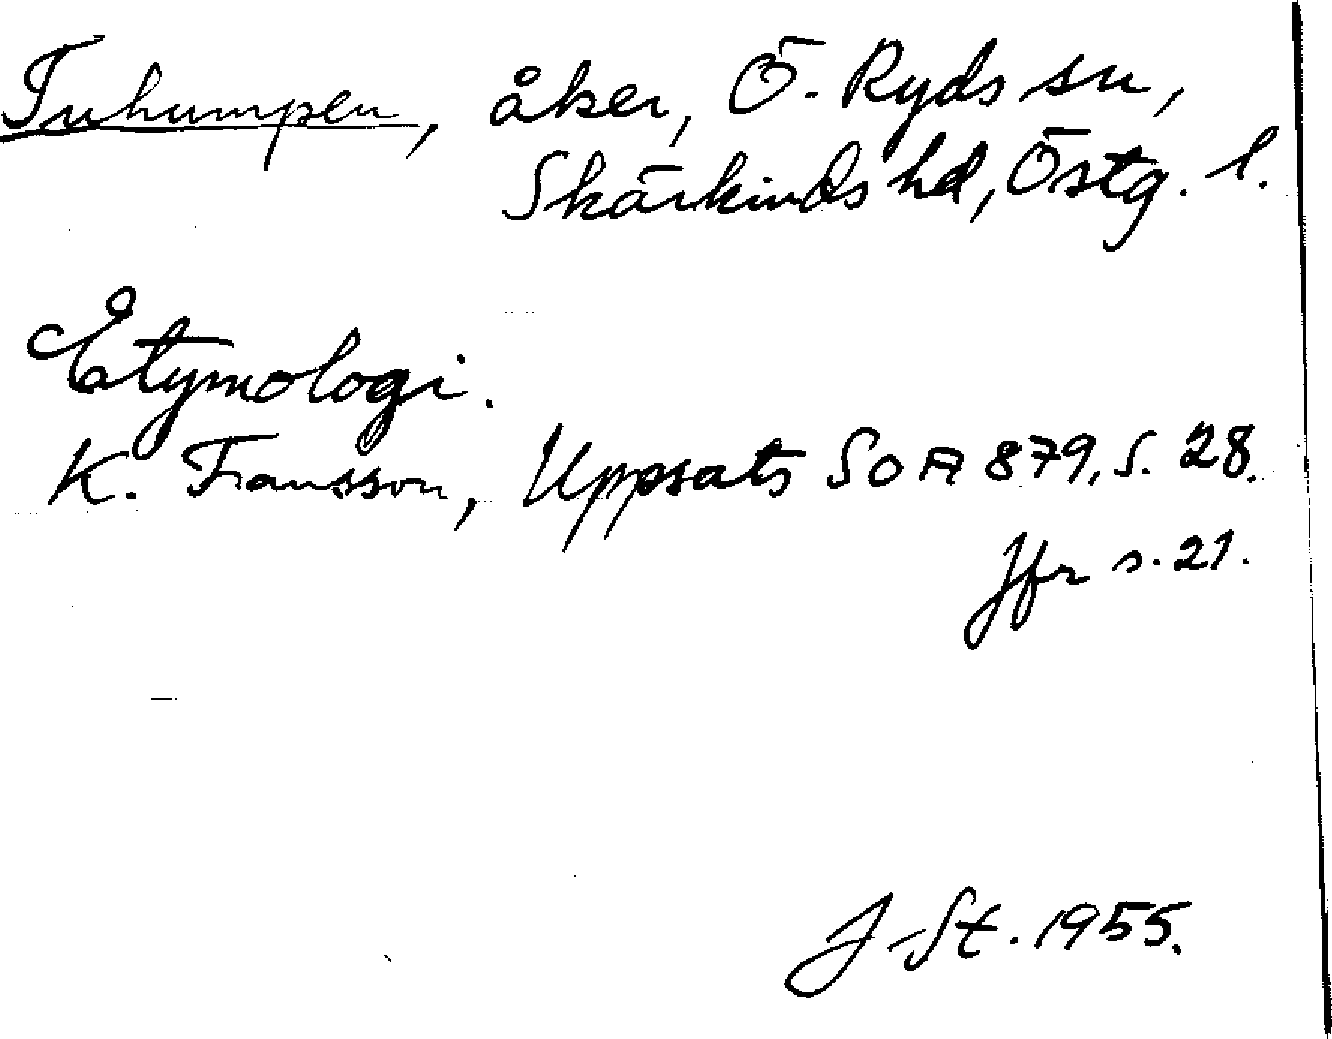 Tuhumpen, åker, Ö. Ryds sn,
Skärkinds hd, Östg. l.
Etymologi.
K. Fransson, Uppsats SOA 879, S. 28.
Jfr s. 21.
J. St. 1955.